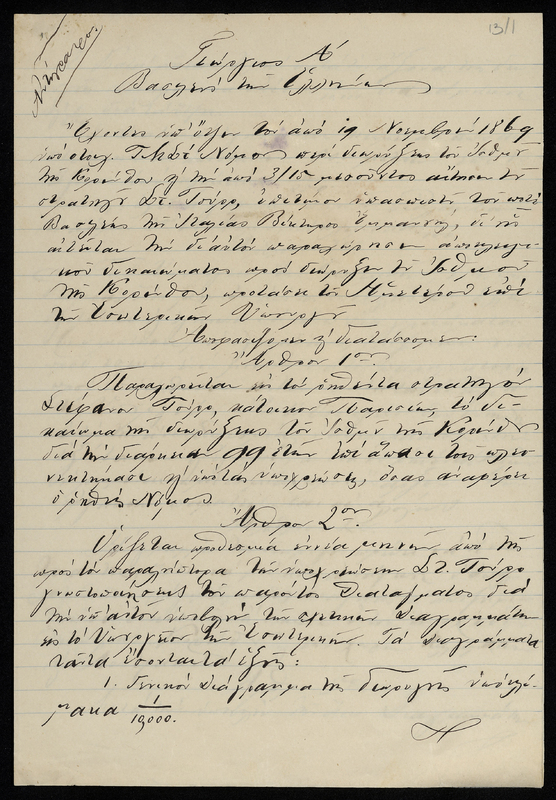 13/1
Ἀντίγραφον.
Γεώργιος Α΄
Βασιλεὺς τῶν Ἑλλήνων
Ἔχοντες ὑπ' ὄψιν τὸν ἀπὸ 19 Νοεμβρίου 1869
ὑπὸ στοιχ. Νόμον περὶ διορύξεως τοῦ Ἰσθμοῦ
τῆς Κορίνθου καὶ τὴν ἀπὸ 3/15 αἴτησιν τοῦ
στρατηγοῦ Στ. Τύρρ, ἐπιτίμου ὑπασπιστοῦ τοῦ
Βασιλέως τῆς Ἰταλίας Βίκτωρος Ἐμμανουὴλ, δι' ἧς
αἰτεῖται τὴν δι' αὐτὸν παραχώρησιν ἀποκλειστι-
κοῦ δικαιώματος πρὸς διόρυξιν τοῦ Ἰσθμοῦ
τῆς Κορίνθου, προτάσει τοῦ Ἡμετέρου ἐπὶ
τῶν Ἐσωτερικῶν Ὑπουργοῦ
Ἀπεφασίσαμεν καὶ διατάσσομεν:
Ἄρθρον 1ον.
Παραχωρεῖται εἰς τὸν ῥηθέντα στρατηγὸν
Στέφανον Τύρρ, κάτοικον Παρισίων, τὸ δι-
καίωμα τῆς διορύξεως τοῦ Ἰσθμοῦ τῆς Κορίνθου
διὰ τὴν διάρκειαν 99 ἐτῶν ἐπὶ ἁπάσαις τοῖς πλεο-
νεκτήμασι καὶ ὑπὸ τὰς ὑποχρεώσεις, ὅσας ἀναφέρει
ὁ ῥηθεὶς Νόμος.
Ἄρθρον 2ον.
Ὁρίζεται προθεσμία ἐννέα μηνῶν ἀπὸ τῆς
πρὸς τὸν παραλήπτορα τῶν ὑποχρεώσεων Στ. Τύρρ
γνωστοποιήσεως τοῦ παρόντος Διατάγματος διὰ
τὴν ὑπ' αὐτοῦ ὑποβολὴν τῶν σχετικῶν διαγραμμάτων
εἰς τὸ Ὑπουργεῖον τῶν Ἐσωτερικῶν. Τὰ διαγράμματα
ταῦτα ἔσονται τὰ ἑξῆς:
1. Γενικὸν διάγραμμα τῆς διώρυγος ὑπὸ κλί-
μακα 1/10,000.